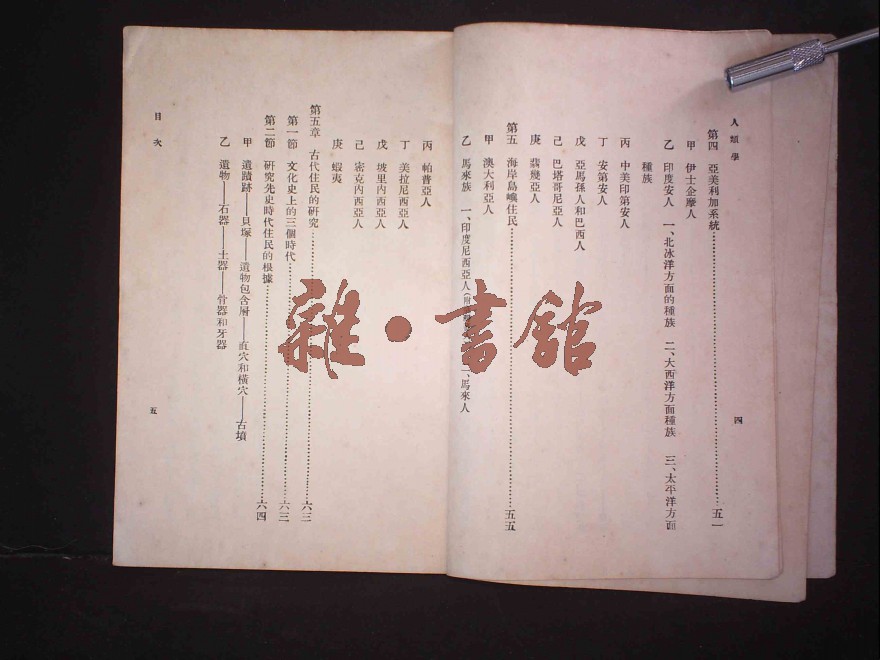 人類學
第四 亞美利加系統………五一
甲 伊士企摩人
乙 印度安人 一、北冰洋方面的種族 二、大西洋方面種族 三、太平洋方面
種族
丙 中美印第安人
丁 安第安人
戊 亞馬孫人和巴西人
己 巴塔哥尼亞人
庚 翡幾亞人
第五 海岸島嶼住民………五五
甲 澳大利亞人
乙 馬來族 一、印度尼西亞人(附 二、馬來人
四
丙 帕普亞人
丁 美拉尼西亞人
戊 坡里內西亞人
己 密克內西亞人
庚 蝦夷
第五章 古代住民的研究………六三
第一節 文化史上的三個時代………六三
第二節 研究先史時代住民的根據………六四
甲 遺蹟跡——貝塚——遺物包含層——直穴和橫穴——古墳
乙 遺物——石器——土器——骨器和牙器
目次
五
雜·書館